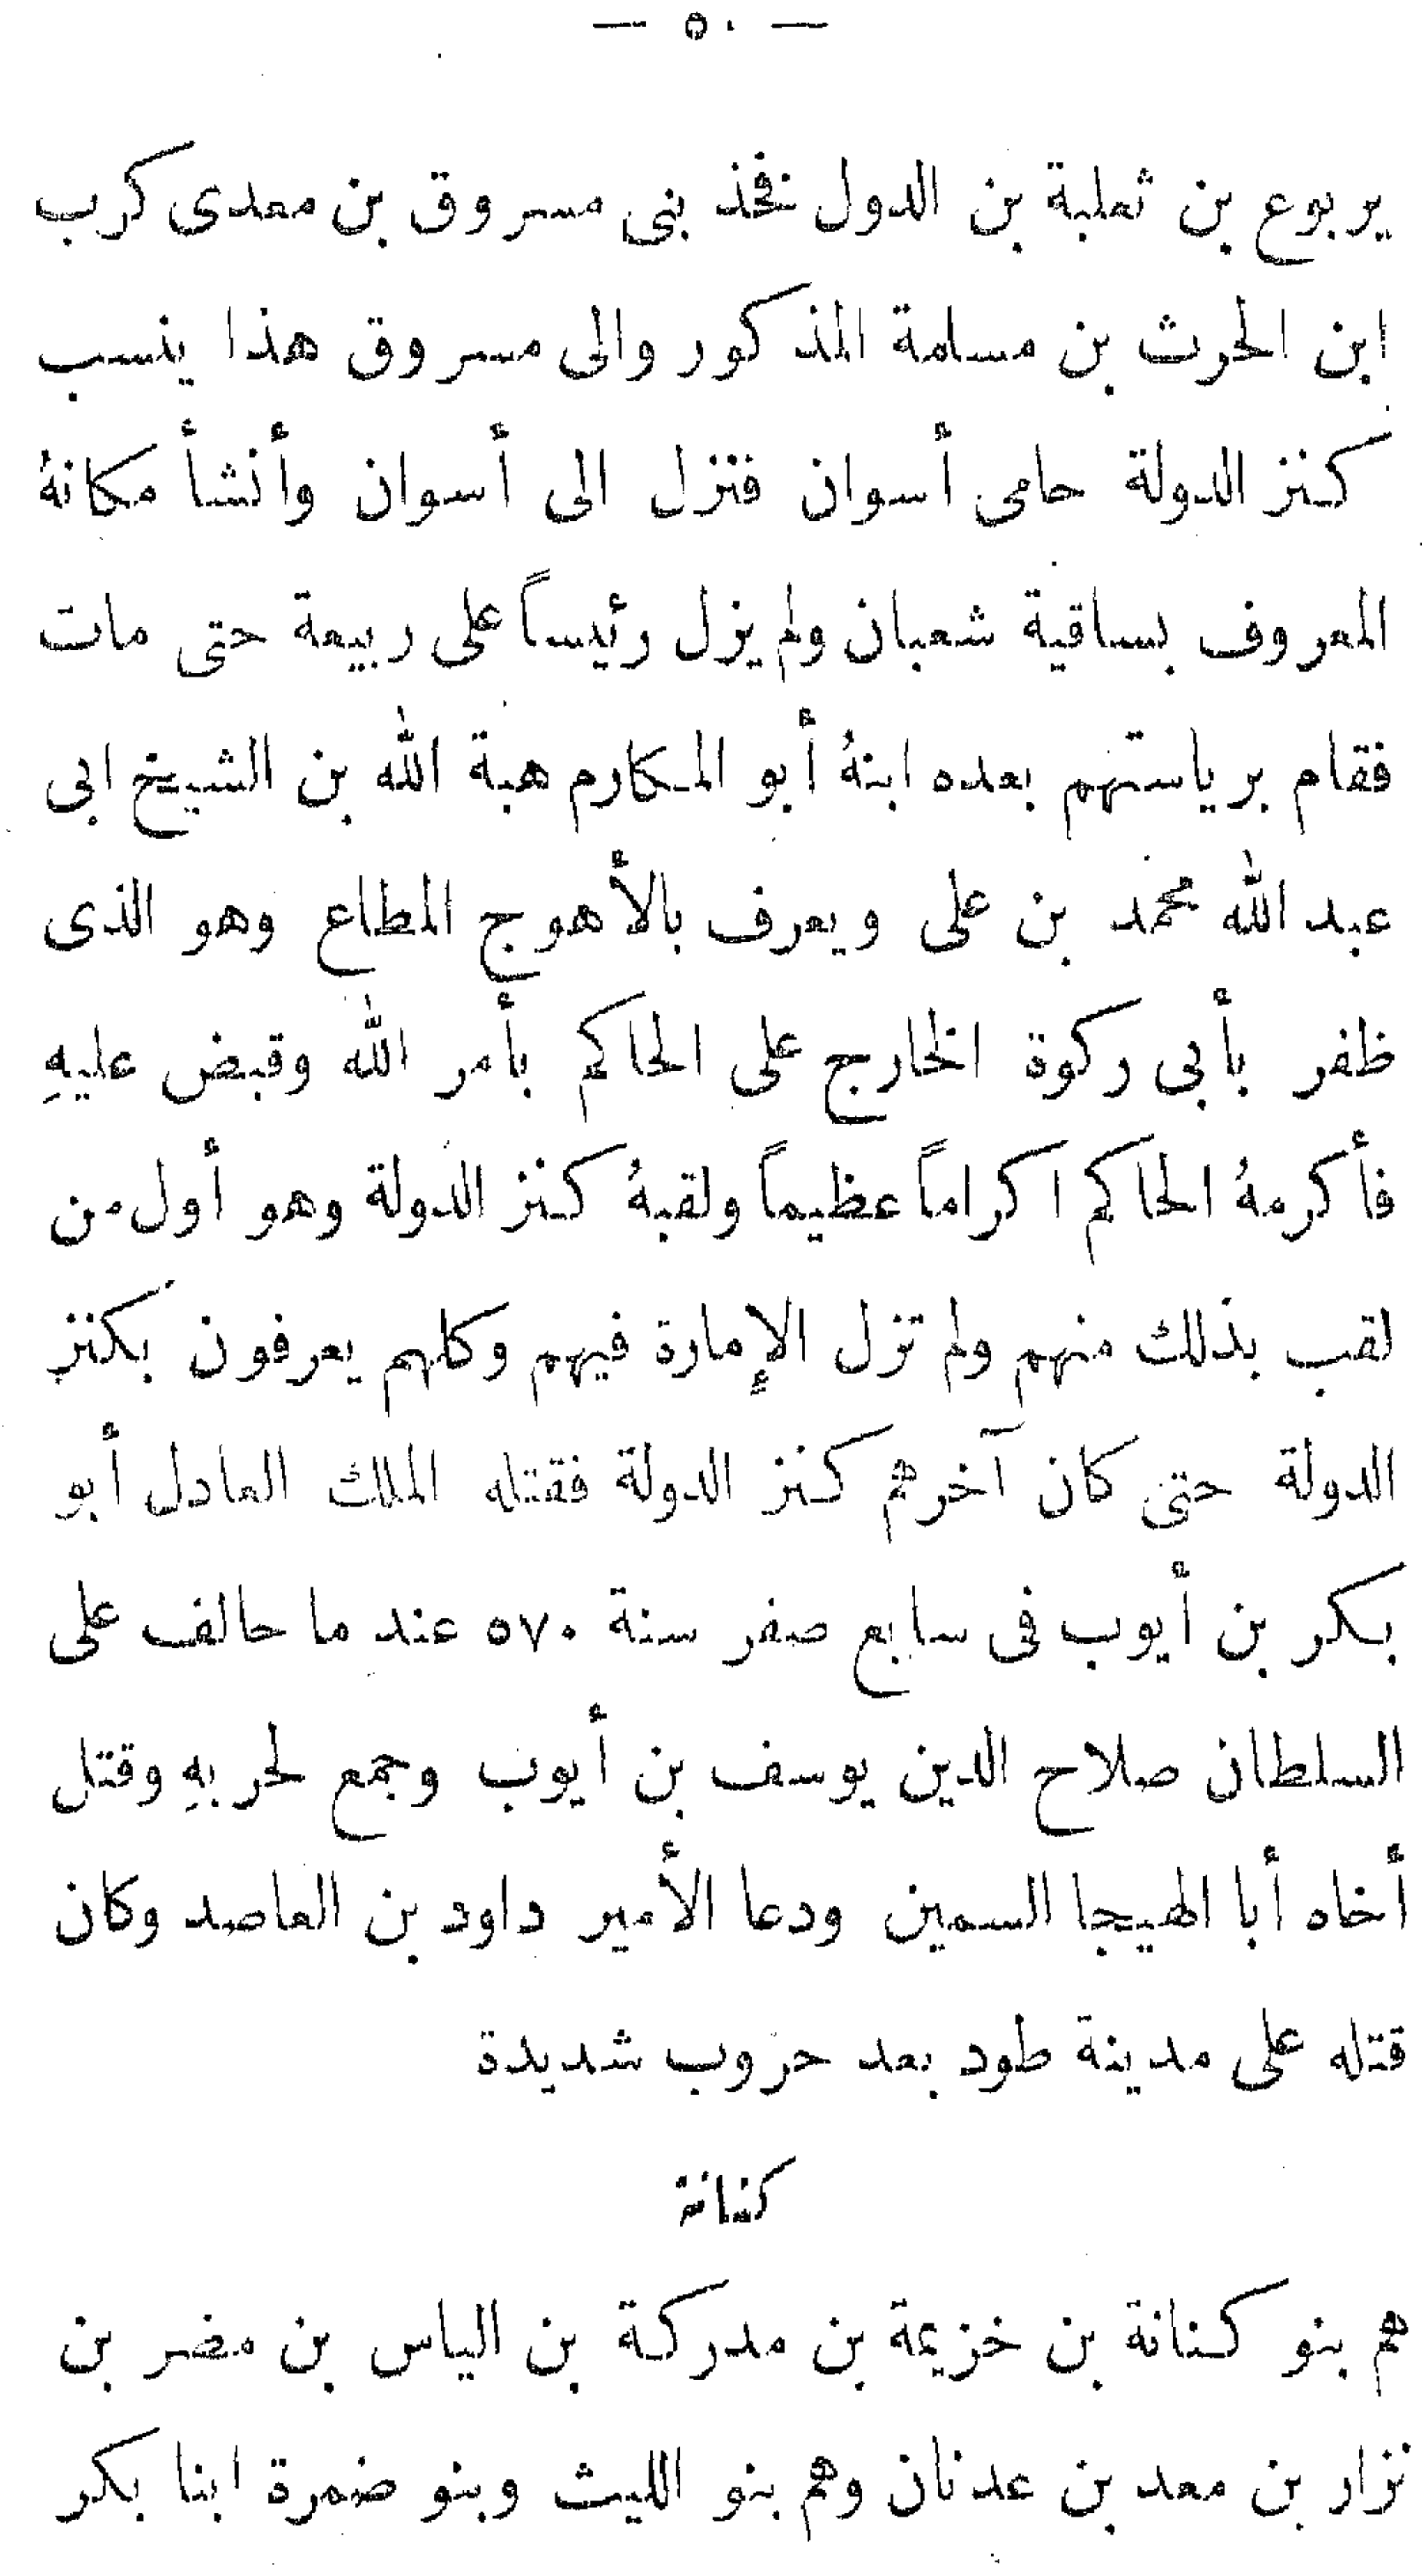 — ٥٠ —
يربوع بن ثعلبة بن الدول فخذ بنى مسروق بن معدى كرب
ابن الحرث بن مسلمة المذكور والى مسروق هذا ينسب
كنز الدولة حامى أسوان فنزل الى أسوان وأنشأ مكانهُ
المعروف بساقية شعبان ولم يزل رئيساً على ربيعة حتى مات
فقام برياستهم بعده ابنهُ أبو المكارم هبة الله بن الشيخ ابى
عبد الله محمد بن على ويعرف بالأهوج المطاع وهو الذى
ظفر بأبى ركوة الخارج على الحاكم بأمر الله وقبض عليهِ
فأكرمهُ الحاكم اكراماً عظيماً ولقبهُ كنز الدولة وهو أول من
لقب بذلك منهم ولم تزل الإمارة فيهم وكلهم يعرفون بكنز
الدولة حتى كان آخرهم كنز الدولة فقتله الملك العادل أبو
بكر بن أيوب فى سابع صفر سنة ٥٧٠ عند ما حالف على
السلطان صلاح الدين يوسف بن أيوب وجمع لحربهِ وقتل
أخاه أبا الهيجا السمين ودعا الأمير داود بن العاصد وكان
قتله على مدينة طود بعد حروب شديدة
كنانة
هم بنو كنانة بن خزيمة بن مدركة بن الياس بن مضر بن
نزار بن معد بن عدنان وهم بنو الليث وبنو ضمرة ابنا بكر